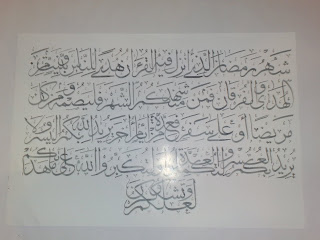 شَهْرُ رَمَضَانَ الَّذِي أُنْزِلَ فِيهِ الْقُرْآنُ هُدًى لِلنَّاسِ وَبَيِّنَاتٍ مِنَ
الْهُدَى وَالْفُرْقَانِ فَمَنْ شَهِدَ مِنْكُمُ الشَّهْرَ فَلْيَصُمْهُ وَمَنْ كَانَ
مَرِيضًا أَوْ عَلَى سَفَرٍ فَعِدَّةٌ مِنْ أَيَّامٍ أُخَرَ يُرِيدُ اللَّهُ بِكُمُ الْيُسْرَ وَلَا
يُرِيدُ بِكُمُ الْعُسْرَ وَلِتُكْمِلُوا الْعِدَّةَ وَلِتُكَبِّرُوا اللَّهَ عَلَى مَا هَدَاكُمْ
وَلَعَلَّكُمْ تَشْكُرُونَ